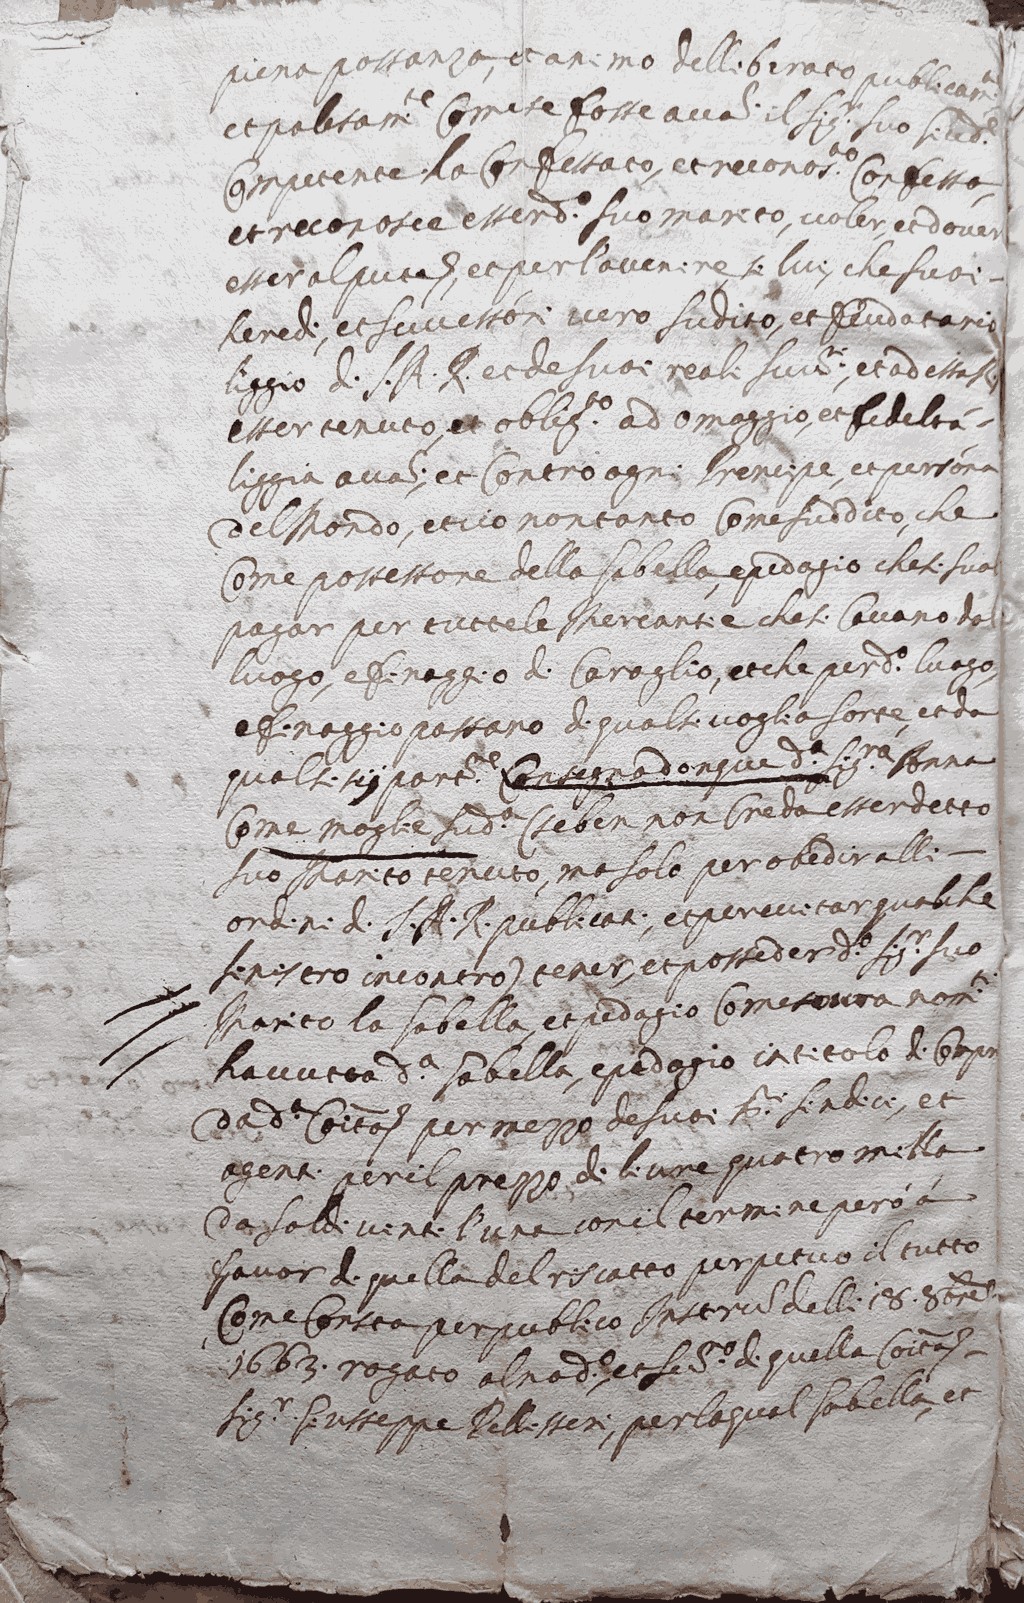 piena possanza, et animo delliberato publicam.te
et palesam.te Come se fosse auati il sig.r suo Giud.e
Competente ha Confessato, et reconos.to Confessa,
et reconosce esser d.o suo marito, uoler, et douer
esser al pnte, et per l'auenire, si lui, che suoi
heredi, et successóri uero sudito, et feudatario
liggio di S. A. R. et de suoi reali succ.ri, et ad essa
esser tenuto, et oblig.to ad omaggio, et fideltà
liggia auati, et Contro ogni Prencipe, et persóna
del Mondo, et ciò non tanto Come suddito, che
Come possessore della gabella, e pedagio che si suol
pagar per tutte le Mercantie che si Cauano dal
luogo, e finaggio di Caraglio, et che per d.o luogo,
e finaggio passano di qualsiuoglia sorte, et da
qualsisij part.e Consegna donque d.a sig.ra Anna
Come moglie sud.a (se ben non Creda esser detto
suo Marito tenuto, ma solo per obedir alli
ordini di S. A. R. publicati, et per euitar qualche
sinistro incontro) tener, et posseder d.o sig.r suo
Marito la gabella, et pedagio Come soura nom.ti
hauuta d.a gabella, e pedagio in titolo di Compra
da d.a Coità per mezzo de suoi ss.ri sindici, et
agenti per il prezzo di liure quatro milla
da soldi uenti l'una con il termine però à
fauor di quella del riscatto perpetuo il tutto
Come Consta per publico Instrto delli 18. 8bre
1663. rogato al nod.o, et seg.ro di quella Coità
sig.r Giusseppe Pellisseri, per la qual gabella, et